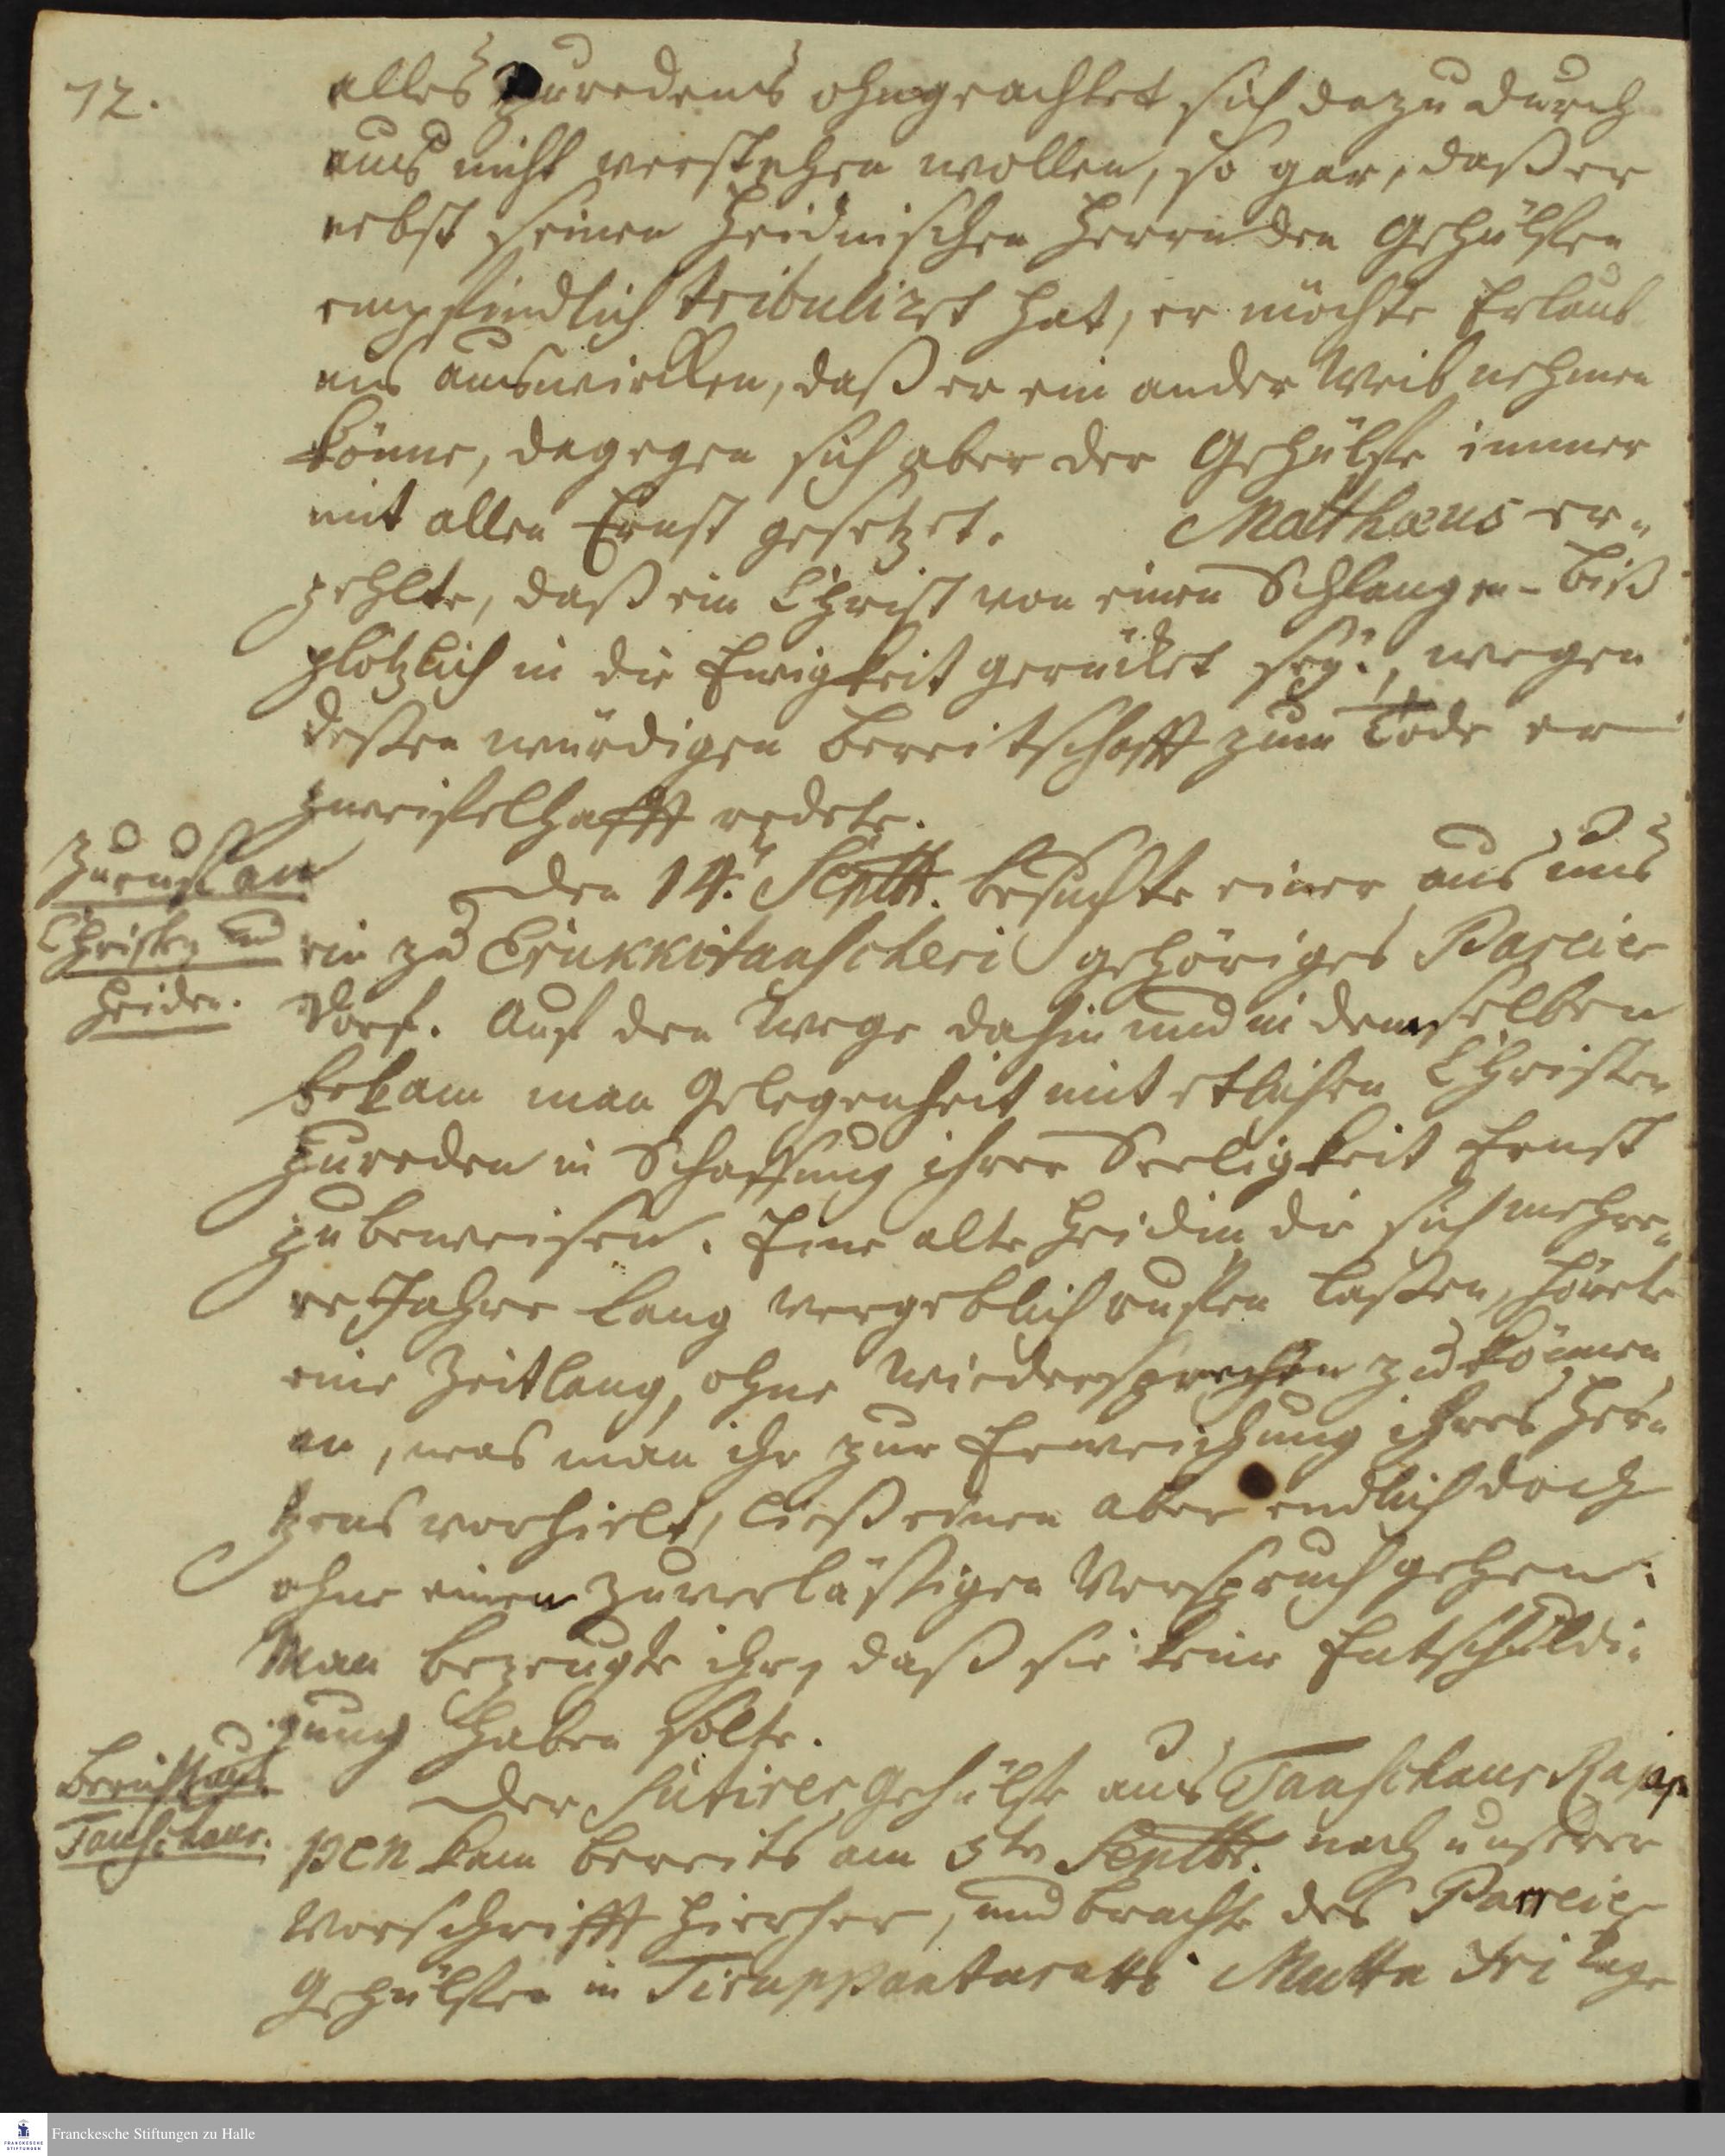 72.
alles zuredens ohngeachtet sich dazu durch
aus nicht verstehen wollen, so gar, daß er
nebst seinen Heidnischen Herrn den Gehülfen
empfindlich tribuliret hat, er möchte Erlaub
nis auswircken, daß er ein ander Weib nehmen
könne, dagegen sich aber der Gehülfe immer
mit allen Ernst gesetzet. Matthæus er-
zehlte, daß ein Christ von einen Schlangen-Biß
plötzlich in die Ewigkeit gerücket sey, wegen
deßen würdigen Bereitschafft zum Tode er
zweifelhafft redete.
Zuruf an
Christen und
Heiden.
Den 14. Septbr. besuchte einer aus uns
ein zu Erukkitaascheri gehöriges Pareier
Dorf. Auf den Wege dahin und in demselben
bekam man Gelegenheit mit etlichen Christen
zureden in Schaffung ihrer Seeligkeit Ernst
zubeweisen. Eine alte Heidin die sich mehre-
re Jahre lang vergeblich ruffen laßen, hörete
eine Zeitlang, ohne wiedersprechen zu können
an, was man ihr zur Erweichung ihres Her-
tzens vorhielt, ließ einen aber endlich doch
ohne einen zuverläßigen Verspruch gehen.
Man bezeugte ihr, daß sie keine Entschuldi-
gung haben solte.
Bericht aus
Tanschaur.
Der Sutirer Gehülfe aus Tanschaur Rajap-
pen kam bereits am 5ten Septbr. nach unserer
Vorschrifft hierher, und brachte des Parreier
Gehülfen in Tiruppantaratti Muttu Tage
Franckesche Stiftungen zu Halle